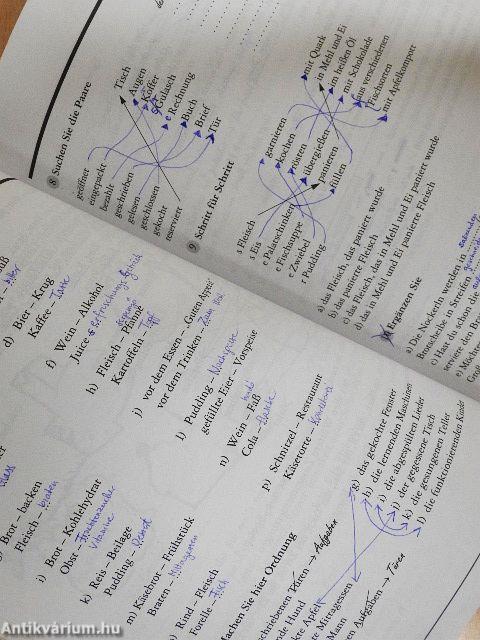 8 Suchen Sie die Paare
geöffnet
eingepackt
bezahlt
geschrieben
gelesen
geschlossen
gekocht
reserviert
Tisch
Augen
Koffer
Gulasch
Rechnung
Buch
Brief
Tür
9 Schritt für Schritt
s Fleisch
s Eis
e Palatschinken
e Fischsuppe
e Zwiebel
r Pudding
garnieren
kochen
rösten
übergießen
panieren
füllen
mit Quark
in Mehl und Ei
im heißen Öl
mit Schokolade
aus verschiedenen
Fischsorten
mit Apfelkompott
a) das Fleisch, das paniert wurde
b) das panierte Fleisch
c) das Fleisch, das in Mehl und Ei paniert wurde
d) das in Mehl und Ei panierte Fleisch
Ergänzen Sie
a) Die Nockerln werden in
d) Bier – Krug
Kaffee – Tasse
f) Wein – Alkohol
Juice –
h) Fleisch – Pfanne
Kartoffeln – Topf
j) vor dem Essen – Guten Appetit
vor dem Trinken –
l) Pudding – Nachspeise
gefüllte Eier – Vorspeise
n) Wein – Faß
Cola –
p) Schnitzel – Restaurant
Käsetorte –
Brot – backen
Fleisch – braten
i) Brot – Kohlehydrat
Obst –
Vitamine
k) Reis – Beilage
Pudding –
m) Käsebrot – Frühstück
Braten – Mittagessen
Rind – Fleisch
Forelle – Fisch
machen Sie hier Ordnung
schriebenen Türen → Aufgaben
Mittagessen
Aufgaben → Türen
g) das gekochte Fenster
h) die lernenden Maschinen
i) die abgespülten Lieder
j) der gegossene Tisch
k) die gesungenen Teller
l) die funktionierenden Kinder
Antikvárium.hu